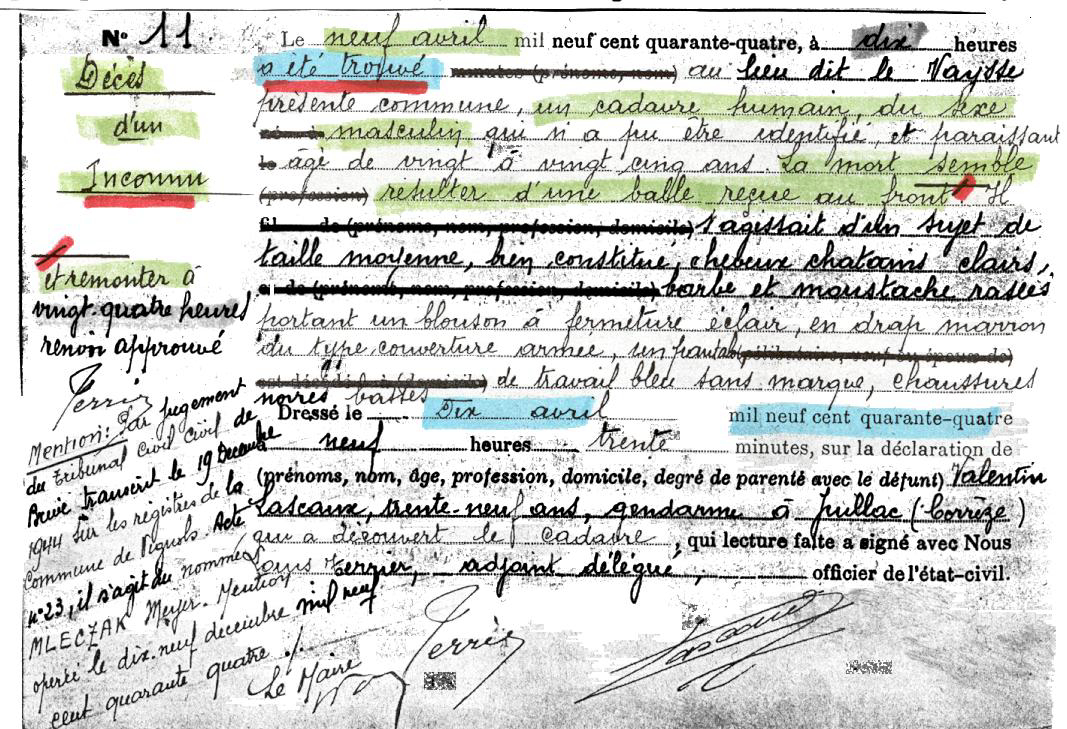 N° 11
Décès
d'un
Inconnu
et remonter à
vingt-quatre heures
renvoi approuvé
Terrier
Mention: Par jugement
du Tribunal Civil Civil de
Brive transcrit le 19 Décembre
1944 sur les registres de la
Commune de Vignols. Acte
n° 23, il s'agit du nommé
MLECZAK Meyer. Mention
opérée le dix-neuf décembre mil neuf
cent quarante quatre ./.
Le Maire
Le neuf avril mil neuf cent quarante-quatre, à dix heures
a été trouvé minutes (prénoms, nom) au lieu dit le Vaysse
présente commune, un cadavre humain, du sexe
né à masculin qui n'a pu être identifié, et paraissant
le âgé de vingt à vingt cinq ans. La mort semble
(profession) résulter d'une balle reçue au front Il
fil de (prénoms, nom, profession, domicile) s'agissait d'un sujet de
taille moyenne, bien constitué, cheveux chatains clairs,
et de (prénoms, nom, profession, domicile) barbe et moustache rasées
portant un blouson à fermeture éclair, en drap marron
du type couverture armée, un pantal (célibataire, veuf ou époux de)
est décédé à (domicile) de travail bleu sans marque, chaussures
noires basses
Dressé le Dix avril mil neuf cent quarante-quatre
neuf heures trente minutes, sur la déclaration de
(prénoms, nom, âge, profession, domicile, degré de parenté avec le défunt) Valentin
Lascaux, trente-neuf ans, gendarme à Juillac (Corrèze)
qui a découvert le cadavre, qui lecture faite a signé avec Nous
Louis Terrier, adjoint délégué, officier de l'état-civil.
Terrier
Lascaux